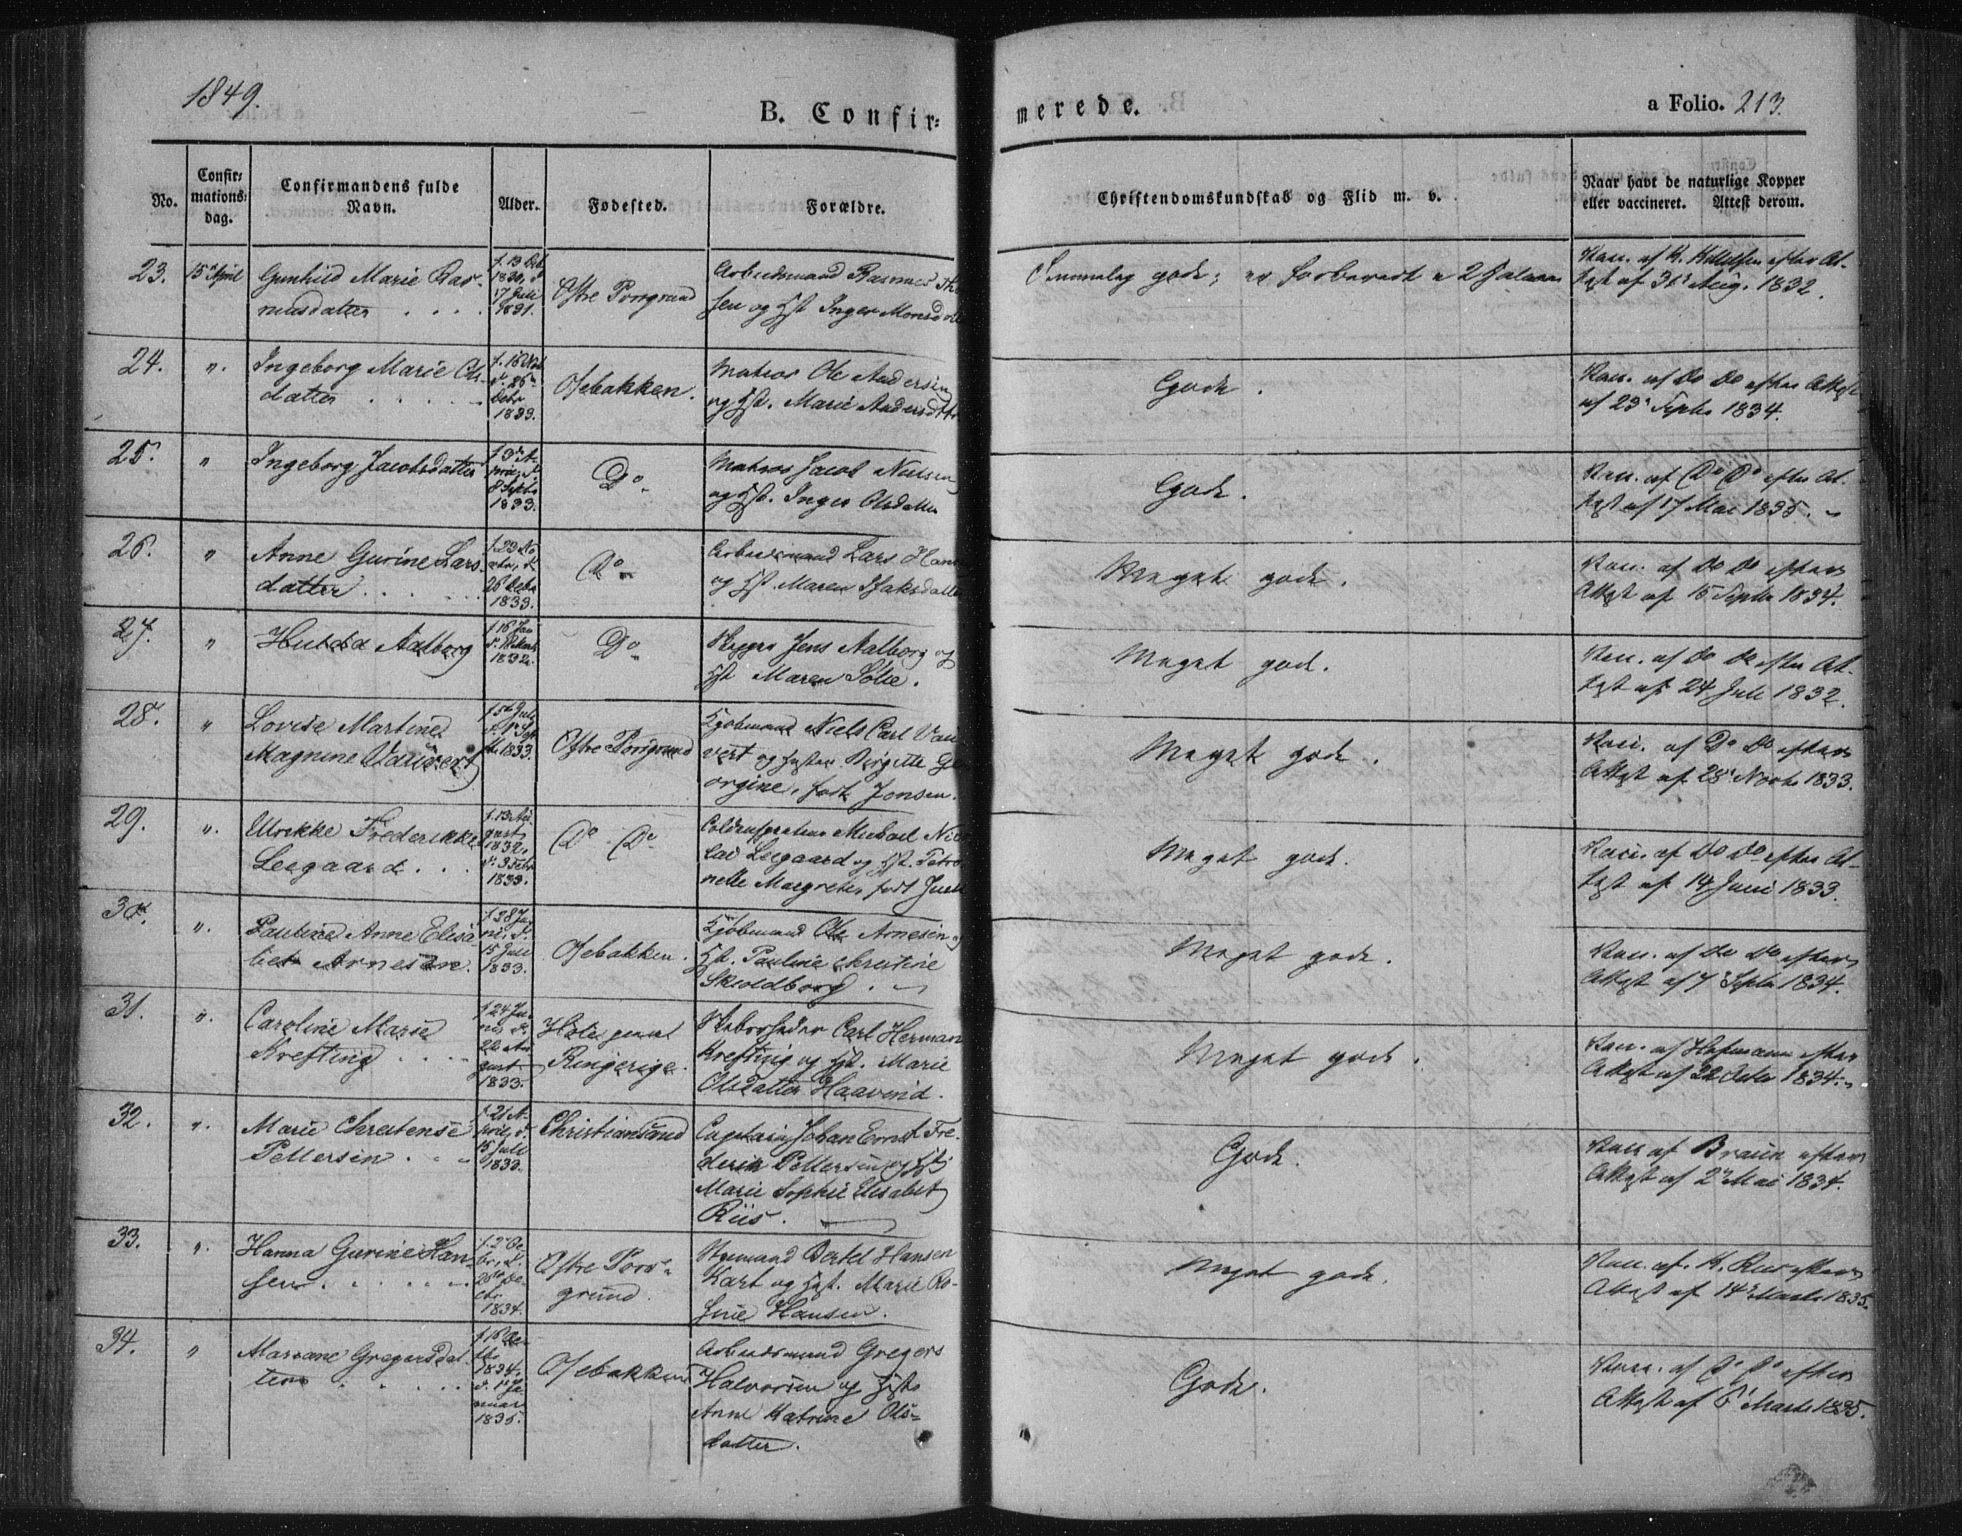 1849.
B. Confir-
merede.
a Folio. 213.
No.
Confir-
mations-
dag.
Confirmandens fulde
Navn.
Alder.
Fødested.
Forældre.
Christendomskundskab og Flid m. v.
Naar havt de naturlige Kopper
eller vaccineret. Attest derom.
23.
15 April
Gunhild Marie Ras-
musdatter
1830,
17 Juli
1831.
Østre Porsgrund
Arbeidsmand Rasmus
sen og Hst Inger Monsd
Temmelig gode;
Vacc. af K. Kittelsen efter At-
test af 31 Aug. 1832.
24.
".
Ingeborg Marie Ols-
datter
1833.
Osebakken.
Matros Ole Andersen
og Hst. Marie Andersdtr
Gode.
Vacc. af Do Do efter Attest
af 23 Septbr 1834.
25.
"
Ingeborg Jacobsdatter
8 Septbr
1833.
Do
Matros Jacob Nielsen
og Hst. Inger Olsdatter
Gode.
Vacc. af Do Do efter At-
test af 17 Mai 1835.
26.
"
Anne Gurine Lars-
datter
f. 23 No
26 Debr
1833.
Do
Arbeidsmand Lars Han
og Hst Maren Isaksdatter
Meget gode.
Vacc. af Do Do efter
Attest af 15 Septbr 1834.
27.
"
Hulda Aalborg
f. 16 Jan
1832.
Do
Skipper Jens Aalborg og
Hst Maren Solie.
Meget god.
Vacc. af Do Do efter At-
test af 24 Juli 1832.
28.
"
Lovise Martine
Magnine Vauvert
1833.
Østre Porsgrund
Kjøbmand Niels Carl Vau
vert og Hustru Birgitte Ge
orgine, født Jonsen.
Meget gode.
Vacc. af Do Do efter
Attest af 28 Novbr 1833.
29.
".
Ulrikke Frederikke
Leegaard
f. 13 Au
gust
1832,
d. 3 Febr
1833.
Do Do
Toldinspecteur Michael Nico
lai Leegaard og Hst. Petro
nelle Margrethe, født Juel
Meget gode.
Vacc. af Do Do efter At-
test af 14 Juni 1833.
30.
".
Pauline Anne Elisa
bet Arnesen.
f. 28 Ju
ni, d.
15 Juli
1833.
Osebakken.
Kjøbmand Ole Arnesen og
Hst. Pauline Christine
Skioldborg.
Meget gode.
Vacc. af Do Do efter
Attest af 7 Septbr 1834.
31.
".
Caroline Marie
Krefting
f. 24 Ju
ni, d.
22 Au
gust
1833.
Ringerige.
Carl Herman
Krefting og Hst. Marie
Olsdatter Haavind.
Meget gode.
Vacc. af Hofmann efter
Attest af 22 Octbr 1834.
32.
".
Marie Christense
Pettersen
f. 21 A-
pril, d.
15 Juli
1833.
Christiansand
Captain Johan Ernst Fre-
derik Pettersen og Hst
Marie Sophie Elisabet
Riis.
Gode.
Vacc af Braun efter
Attest af 2 Mai 1834.
33.
".
Hanna Gurine Han-
sen.
1834.
Østre Pors-
grund.
Styrmand Bertel Hansen
Kart og Hst. Marie Ro-
sine Hansen.
Meget gode.
Vacc. af K. Riis efter
Attest af 14 Marts 1835.
34.
"
Mariane Gregersdat-
ter
1834.
d. 1 Ja
nuar
1835.
Osebakken
Arbeidsmand Gregers
Halvorsen og Hst
Anne Katrine Ols-
datter.
Gode.
Vacc. af Do Do efter
Attest af 6 Marts 1835.